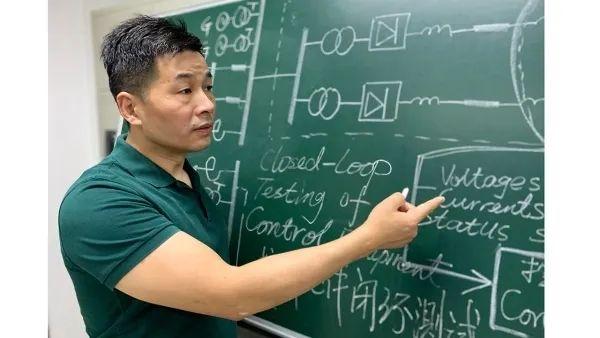 G
Closed-Loop
Testing of
Control
闭环测试
Voltages
currents
status
Con